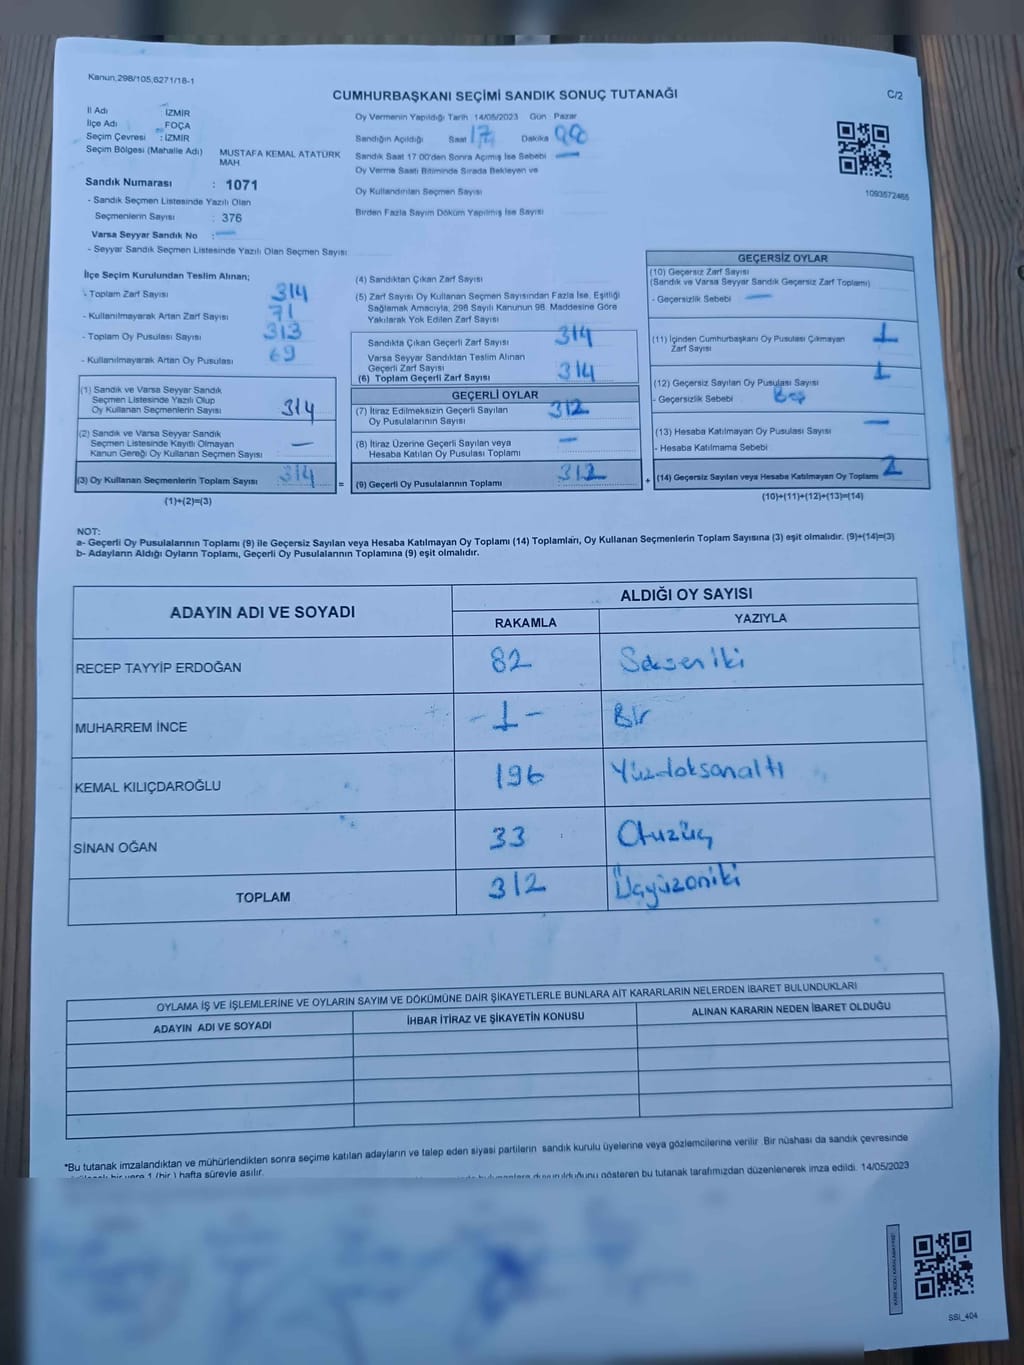 Kanun,298/105,6271/18-1
CUMHURBAŞKANI SEÇİMİ SANDIK SONUÇ TUTANAĞI
C/2
İl Adı : İZMİR
İlçe Adı : FOÇA
Seçim Çevresi : İZMİR
Seçim Bölgesi (Mahalle Adı) MUSTAFA KEMAL ATATÜRK MAH.
Sandık Numarası : 1071
- Sandık Seçmen Listesinde Yazılı Olan
Seçmenlerin Sayısı : 376
Varsa Seyyar Sandık No :
- Seyyar Sandık Seçmen Listesinde Yazılı Olan Seçmen Sayısı
Oy Vermenin Yapıldığı Tarih 14/05/2023 Gün Pazar
Sandığın Açıldığı Saat 17 Dakika
Sandık Saat 17:00'den Sonra Açımış İse Sebebi
Oy Verme Saati Bitiminde Sırada Bekleyen ve
Oy Kullandırılan Seçmen Sayısı
Birden Fazla Sayım Döküm Yapılmış İse Sayısı
1093572465
İlçe Seçim Kurulundan Teslim Alınan;
- Toplam Zarf Sayısı 314
- Kullanılmayarak Artan Zarf Sayısı 71
- Toplam Oy Pusulası Sayısı 313
- Kullanılmayarak Artan Oy Pusulası 69
(1) Sandık ve Varsa Seyyar Sandık
Seçmen Listesinde Yazılı Olup
Oy Kullanan Seçmenlerin Sayısı 314
(2) Sandık ve Varsa Seyyar Sandık
Seçmen Listesinde Kayıtlı Olmayan
Kanun Gereği Oy Kullanan Seçmen Sayısı —
(3) Oy Kullanan Seçmenlerin Toplam Sayısı 314
(1)+(2)=(3)
(4) Sandıktan Çıkan Zarf Sayısı
(5) Zarf Sayısı Oy Kullanan Seçmen Sayısından Fazla İse, Eşitliği
Sağlamak Amacıyla, 298 Sayılı Kanunun 98. Maddesine Göre
Yakılarak Yok Edilen Zarf Sayısı
Sandıkta Çıkan Geçerli Zarf Sayısı 314
Varsa Seyyar Sandıktan Teslim Alınan
Geçerli Zarf Sayısı
(6) Toplam Geçerli Zarf Sayısı 314
GEÇERLİ OYLAR
(7) İtiraz Edilmeksizin Geçerli Sayılan
Oy Pusulalarının Sayısı 312
(8) İtiraz Üzerine Geçerli Sayılan veya
Hesaba Katılan Oy Pusulası Toplamı —
= (9) Geçerli Oy Pusulalarının Toplamı 312
GEÇERSİZ OYLAR
(10) Geçersiz Zarf Sayısı
(Sandık ve Varsa Seyyar Sandık Geçersiz Zarf Toplamı)
- Geçersizlik Sebebi —
(11) İçinden Cumhurbaşkanı Oy Pusulası Çıkmayan
Zarf Sayısı 1
(12) Geçersiz Sayılan Oy Pusulası Sayısı 1
- Geçersizlik Sebebi Boş
(13) Hesaba Katılmayan Oy Pusulası Sayısı —
- Hesaba Katılmama Sebebi
+ (14) Geçersiz Sayılan veya Hesaba Katılmayan Oy Toplamı 2
(10)+(11)+(12)+(13)=(14)
NOT:
a- Geçerli Oy Pusulalarının Toplamı (9) ile Geçersiz Sayılan veya Hesaba Katılmayan Oy Toplamı (14) Toplamları, Oy Kullanan Seçmenlerin Toplam Sayısına (3) eşit olmalıdır. (9)+(14)=(3)
b- Adayların Aldığı Oyların Toplamı, Geçerli Oy Pusulalarının Toplamına (9) eşit olmalıdır.
ADAYIN ADI VE SOYADI
ALDIĞI OY SAYISI
RAKAMLA YAZIYLA
RECEP TAYYİP ERDOĞAN 82 Seksen iki
MUHARREM İNCE -1- Bir
KEMAL KILIÇDAROĞLU 196 Yüzdoksanaltı
SİNAN OĞAN 33 Otuzüç
TOPLAM 312 Üçyüzoniki
OYLAMA İŞ VE İŞLEMLERİNE VE OYLARIN SAYIM VE DÖKÜMÜNE DAİR ŞİKAYETLERLE BUNLARA AİT KARARLARIN NELERDEN İBARET BULUNDUKLARI
ADAYIN ADI VE SOYADI İHBAR İTİRAZ VE ŞİKAYETİN KONUSU ALINAN KARARIN NEDEN İBARET OLDUĞU
*Bu tutanak imzalandıktan ve mühürlendikten sonra seçime katılan adayların ve talep eden siyasi partilerin sandık kurulu üyelerine veya gözlemcilerine verilir. Bir nüshası da sandık çevresinde
bir yere 1 (bir) hafta süreyle asılır.
duyurulduğunu gösteren bu tutanak tarafımızdan düzenlenerek imza edildi. 14/05/2023
SSI_404